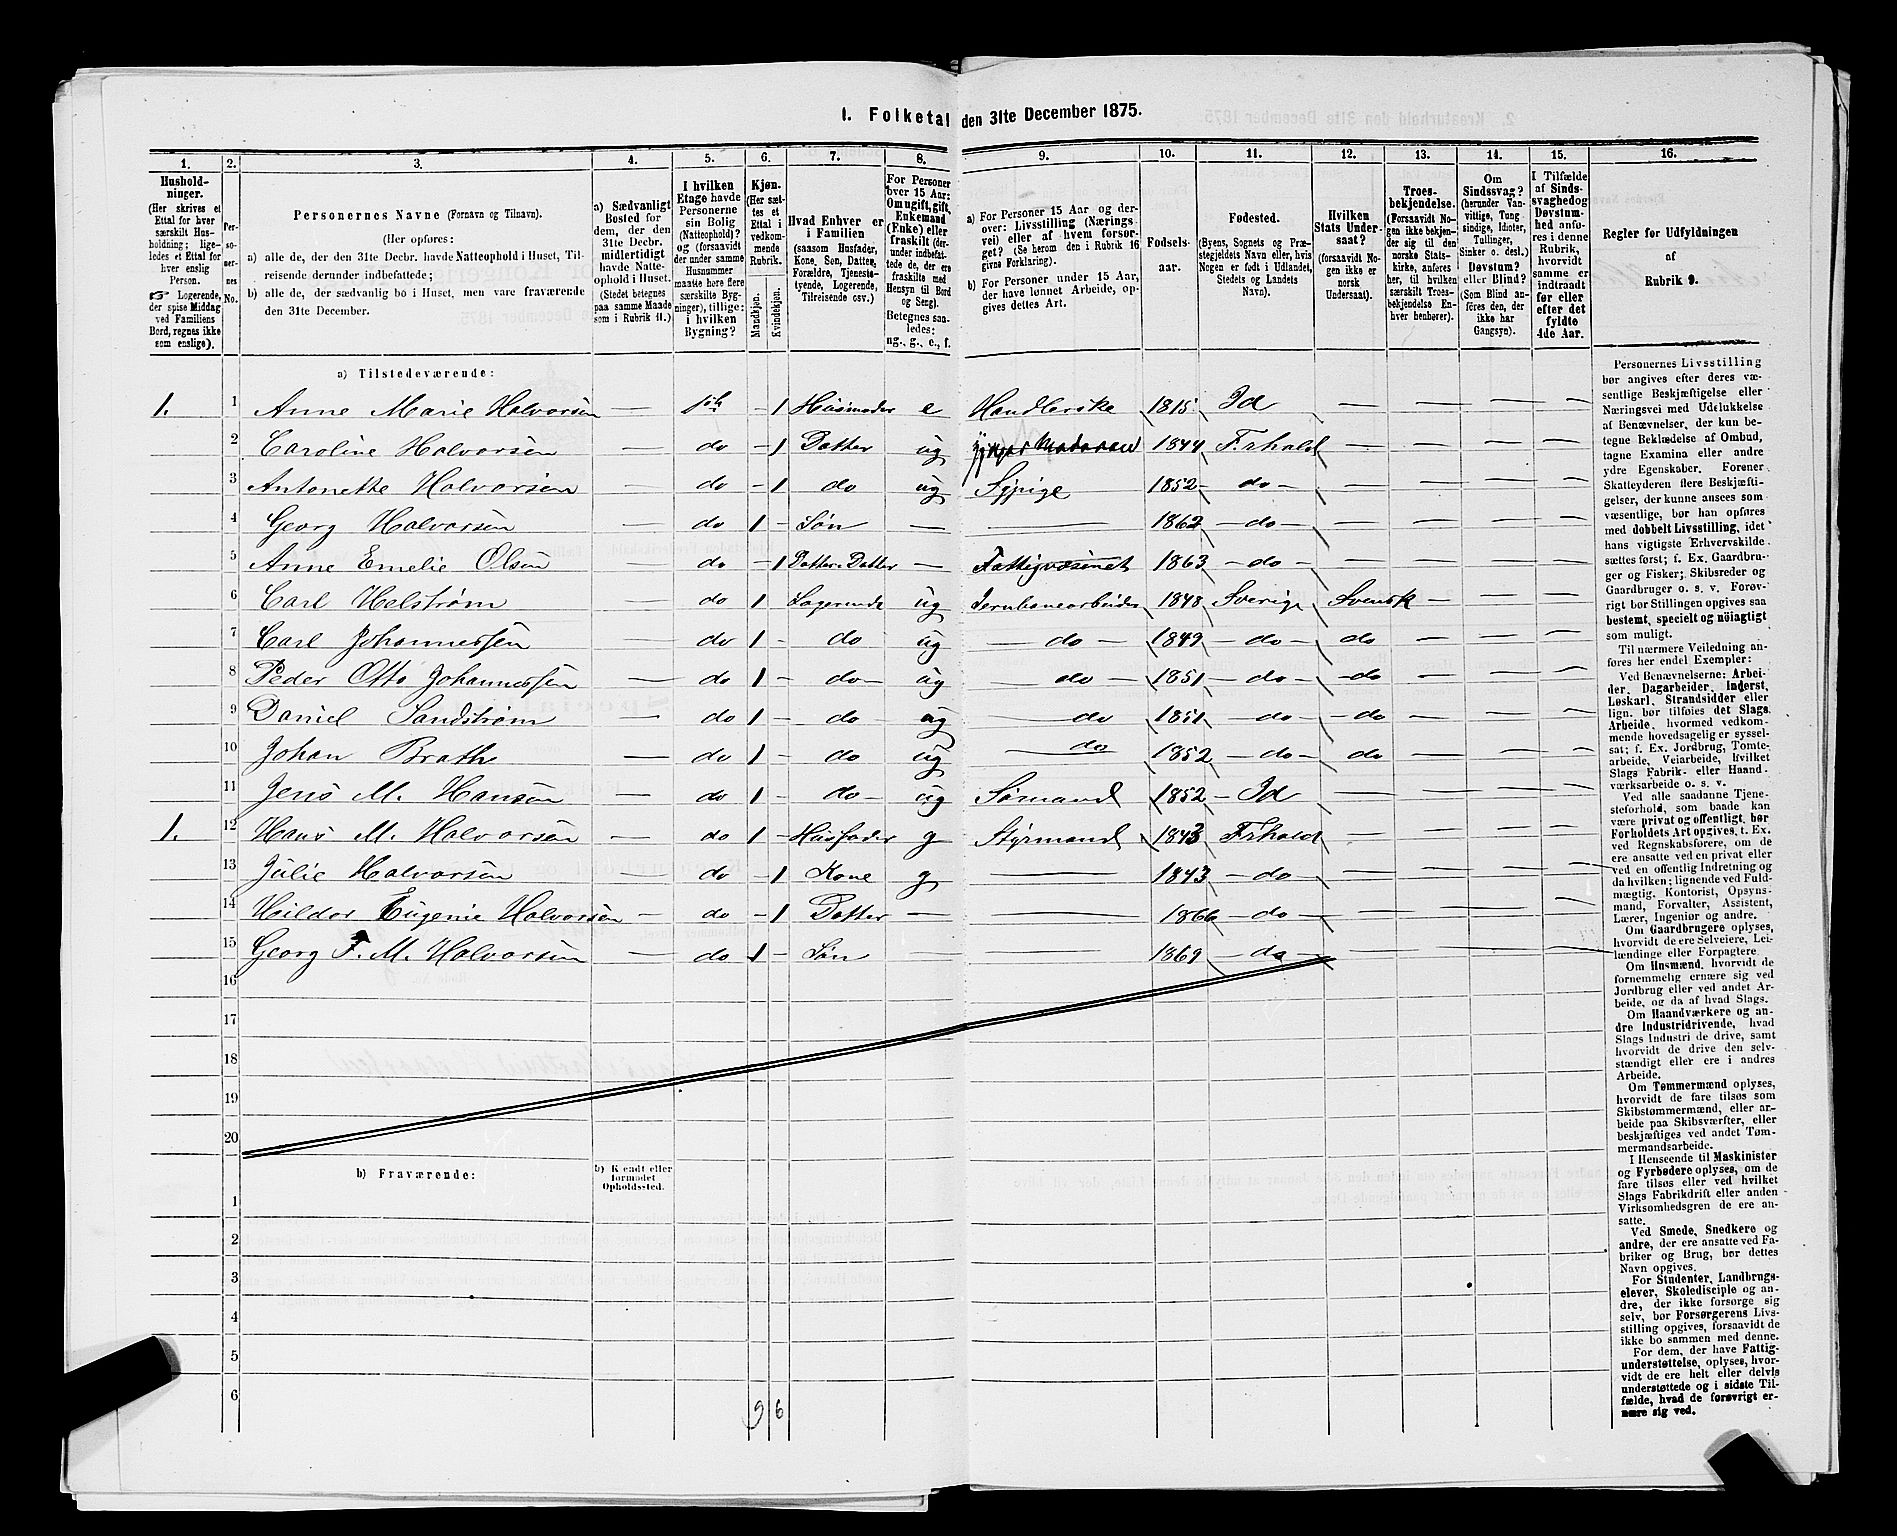 1. Folketal den 31te December 1875.
1. 2. 3. 4. 5. 6. 7. 8. 9. 10. 11. 12. 13. 14. 15. 16.
Hushold-
ninger.
(Her skrives et
Ettal for hver
særskilt Hus-
holdning; lige-
ledes et Ettal for
hver enslig
Person.
☞ Logerende,
der spise Middag
ved Familiens
Bord, regnes ikke
som enslige).
Per-
so-
ner-
nes
No.
Personernes Navne (Fornavn og Tilnavn).
(Her opføres:
a) alle de, der den 31te Decbr. havde Natteophold i Huset, Til-
reisende derunder indbefattede;
b) alle de, der sædvanlig bo i Huset, men vare fraværende
den 31te December.
a) Sædvanligt
Bosted for
dem, der den
31te Decbr.
midlertidigt
havde Natte-
ophold i Huset.
(Stedet betegnes
paa samme Maade
som i Rubrik 11.)
I hvilken
Etage havde
Personerne
sin Bolig
(Natteophold)?
og (forsaavidt
der under samme
Husnummer
maatte høre flere
særskilte Byg-
ninger), tillige:
i hvilken
Bygning?
Kjøn.
(Her sæt-
tes et
Ettal i
vedkom-
mende
Rubrik.
Mandkjøn.
Kvindekjøn.
Hvad Enhver er
i Familien
(saasom Husfader,
Kone, Søn, Datter,
Forældre, Tjeneste-
tyende, Logerende,
Tilreisende osv.)
For Personer
over 15 Aar:
Om ugift, gift,
Enkemand
(Enke) eller
fraskilt (der-
under indbefat-
tede de, der ere
fraskilte med
Hensyn til Bord
og Seng).
Betegnes saa-
ledes:
ug., g., e., f.
a) For Personer 15 Aar og der-
over: Livsstilling (Nærings-
vei) eller af hvem forsør-
get? (Se herom den i Rubrik 16
givne Forklaring).
b) For Personer under 15 Aar,
der have lønnet Arbeide, op-
gives dettes Art.
Fødsels-
aar.
Fødested.
(Byens, Sognets og Præ-
stegjeldets Navn eller, hvis
Nogen er født i Udlandet,
Stedets og Landets
Navn).
Hvilken
Stats Under-
saat?
(forsaavidt No-
gen ikke er
norsk
Undersaat).
Troes-
bekjendelse.
(Forsaavidt No-
gen ikke bekjen-
der sig til den
norske Stats-
kirke, anføres
her, til hvilken
særskilt Troes-
bekjendelse En-
hver henhører).
Om
Sindssvag?
(herunder Van-
vittige, Tung-
sindige, Idioter,
Tullinger,
Sinker o. desl.)
eller Blind?
Døvstum?
(Som Blind an-
føres den, der
ikke har
Gangsyn).
I Tilfælde
af Sinds-
svaghed og
Døvstum-
hed anfø-
res i denne
Rubrik,
hvorvidt
samme er
indtraadt
før eller
efter det
fyldte
4de Aar.
Regler for Udfyldningen
af
Rubrik 9.
a) Tilstedeværende:
1. 1 Anne Marie Halvorsen — 1ste — 1 Husmoder e Handlerske 1815 Id — — — —
2 Caroline Halvorsen — do — 1 Datter ug 1844 Frhald — — — —
3 Antonette Halvorsen — do — 1 do ug Sypige 1852 — do — — — — —
4 Georg Halvorsen — do 1 — Søn — — 1862 — do — — — — —
5 Anne Emelie Olsen — do — 1 Datter-Datter — Fattigvæsenet 1863 — do — — — — —
6 Carl Helstrøm — do 1 Logerende ug Jernbanearbeider 1848 Sverige Svensk — — —
7 Carl Johannessen — do 1 — do ug — do — 1849 — do — do — — —
8 Peder Otto Johannessen — do 1 — do — ug — do — 1851 — do — do — — —
9 Daniel Sandstrøm — do 1 — do ug — do 1851 — do — do — — —
10 Johan Brath — do 1 — do ug — do 1852 — do — do — — —
11 Jens M. Hansen — do 1 — do — ug Sømand 1852 — Id — — — —
1. 12 Hans M. Halvorsen — do 1 — Husfader g Styrmand 1843 Frhald — — — —
13 Julie Halvorsen — do — 1 Kone g — 1843 — do — — — — —
14 Hildor Eugenie Halvorsen — do — 1 Datter — — 1866 — do — — — — —
15 Georg F. M. Halvorsen — do 1 — Søn — — 1869 — do — — — — —
16
17
18
19
20
b) Fraværende:
b) Kjendt eller
formodet
Opholdssted.
1
2
3
4
5
6
9 6
Personernes Livsstilling
bør angives efter deres væ-
sentlige Beskjæftigelse eller
Næringsvei med Udelukkelse
af Benævnelser, der kun be-
tegne Beklædelse af Ombud,
tagne Examina eller andre
ydre Egenskaber. Forener
Skatteyderen flere Beskjæfti-
gelser, der kunne ansees som
væsentlige, bør han opføres
med dobbelt Livsstilling, idet
hans vigtigste Erhvervskilde
sættes først; f. Ex. Gaardbru-
ger og Fisker; Skibsreder og
Gaardbruger o. s. v. Forøv-
rigt bør Stillingen opgives saa
bestemt, specielt og nöiagtigt
som muligt.
Til nærmere Veiledning an-
føres her endel Exempler:
Ved Benævnelserne: Arbei-
der, Dagarbeider, Inderst,
Løskarl, Strandsidder eller
lign. bør tilføies det Slags
Arbeide, hvormed vedkom-
mende hovedsagelig er syssel-
sat; f. Ex. Jordbrug, Tomte-
arbeide, Veiarbeide, hvilket
Slags Fabrik- eller Haand-
værksarbeide o. s. v.
Ved alle saadanne Tjene-
steforhold, som baade kan
være privat og offentligt, bør
Forholdets Art opgives, t. Ex.
ved Regnskabsførere, om de
ere ansatte ved en privat eller
ved en offentlig Indretning og
da hvilken; lignende ved Fuld-
mægtig, Kontorist, Opsyns-
mand, Forvalter, Assistent,
Lærer, Ingeniør og andre.
Om Gaardbrugere oplyses,
hvorvidt de ere Selveiere, Lei-
lændinge eller Forpagtere.
Om Husmænd, hvorvidt de
fornemmelig ernære sig ved
Jordbrug eller ved andet Ar-
beide, og da af hvad Slags.
Om Haandværkere og an-
dre Industridrivende, hvad
Slags Industri de drive, samt
hvorvidt de drive den selv-
stændigt eller ere i andres
Arbeide.
Om Tømmermænd oplyses,
hvorvidt de fare tilsøs som
Skibstømmermænd, eller ar-
beide paa Skibsværfter, eller
beskjæftiges ved andet Tøm-
mermandsarbeide.
I Henseende til Maskinister
og Fyrbødere oplyses, om de
fare tilsøs eller ved hvilket
Slags Fabrikdrift eller anden
Virksomhedsgren de ere an-
satte.
Ved Smede, Snedkere og
andre, der ere ansatte ved Fa-
briker og Brug, bør dettes
Navn opgives.
For Studenter, Landbrugs-
elever, Skoledisciple og an-
dre, der ikke forsørge sig
selv, bør Forsørgerens Livs-
stilling opgives, forsaavidt de
ikke bo sammen med denne.
For dem, der have Fattig-
understøttelse, oplyses, hvor-
vidt de ere helt eller delvis
understøttede og i sidste Til-
fælde, hvad de forøvrigt er-
nære sig ved.